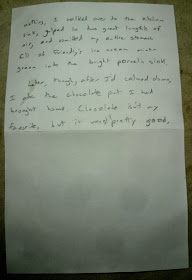 nothing, I walked over to the kitchen
sink, gulped in two great lungfuls of
air, and vomited my entire stomach
full of Friendly's ice cream micro
green into the bright porcelain sink.
Later, though, after I'd calmed down,
I ate the chocolate put I had
brought home. Chocolate isn't my
favorite, but it was pretty good,